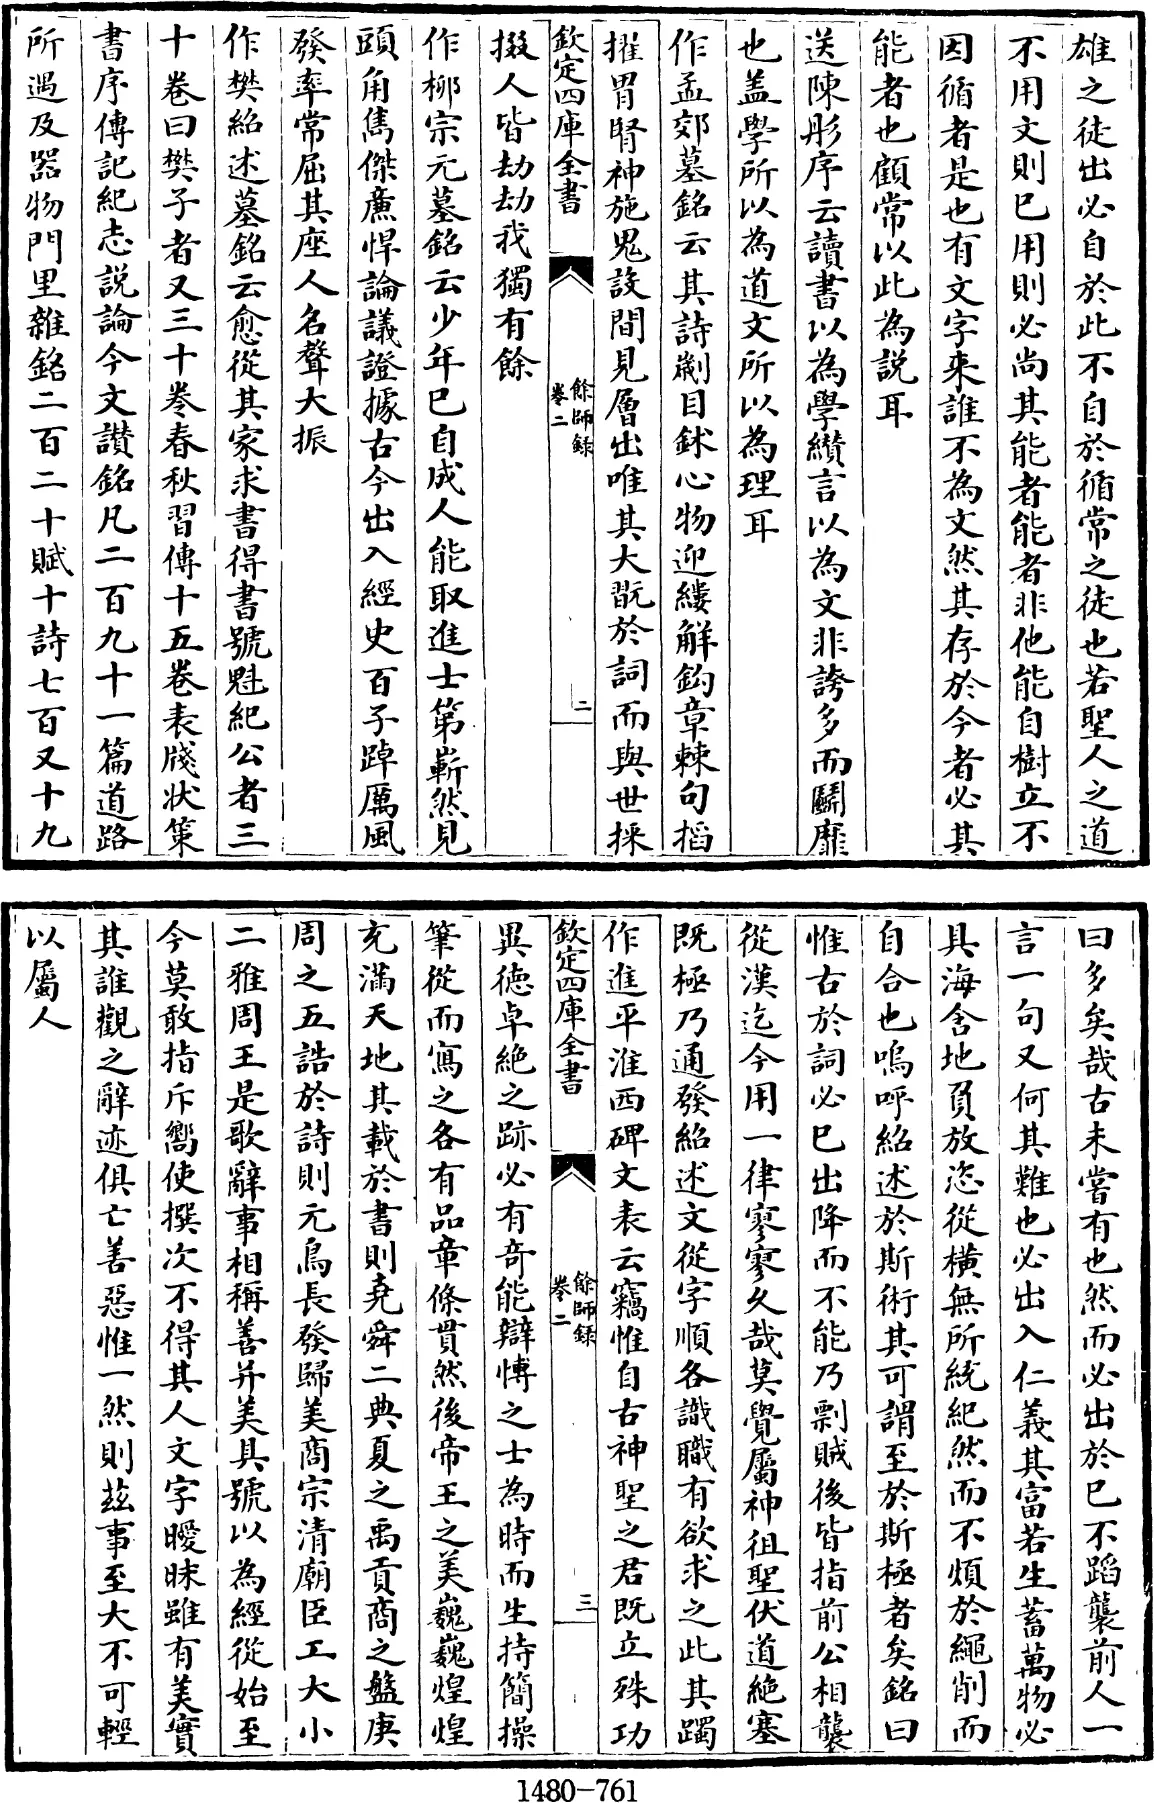 雄之徒出必自於此不自於循常之徒也若聖人之道
不用文則已用則必尚其能者能者非他能自樹立不
因循者是也有文字來誰不為文然其存於今者必其
能者也顧常以此為説耳
送陳彤序云讀書以為學纘言以為文非誇多而鬬靡
也盖學所以為道文所以為理耳
作孟郊墓銘云其詩劌目鉥心物迎縷解鈎章棘句搯
擢胃腎神施鬼設間見層出唯其大翫於詞而與世抹
欽定四庫全書
餘師録
卷二
二
掇人皆劫劫我獨有餘
作栁宗元墓銘云少年已自成人能取進士第嶄然見
頭角雋傑亷悍論議證據古今出入經史百子踔厲風
發率常屈其座人名聲大振
作樊紹述墓銘云愈從其家求書得書號魁紀公者三
十卷曰樊子者又三十卷春秋習傳十五卷表牋狀策
書序傳記紀志説論今文讃銘凡二百九十一篇道路
所遇及器物門里雜銘二百二十賦十詩七百又十九
曰多矣哉古未嘗有也然而必出於已不蹈襲前人一
言一句又何其難也必出入仁義其富若生蓄萬物必
具海含地負放恣從横無所統紀然而不煩於繩削而
自合也嗚呼紹述於斯術其可謂至於斯極者矣銘曰
惟古於詞必已出降而不能乃剽賊後皆指前公相襲
從漢迄今用一律寥寥久哉莫覺屬神徂聖伏道絶塞
既極乃通發紹述文從字順各識職有欲求之此其躅
作進平淮西碑文表云竊惟自古神聖之君既立殊功
欽定四庫全書
餘師録
卷二
三
異徳卓絶之跡必有竒能辯愽之士為時而生持簡操
筆從而寫之各有品章條貫然後帝王之美巍巍煌煌
充滿天地其載於書則堯舜二典夏之禹貢商之盤庚
周之五誥於詩則元鳥長發歸美商宗清廟臣工大小
二雅周王是歌辭事相稱善并美具號以為經從始至
今莫敢指斥嚮使撰次不得其人文字曖昧雖有美實
其誰觀之辭迹俱亡善惡惟一然則兹事至大不可輕
以屬人
1480-761